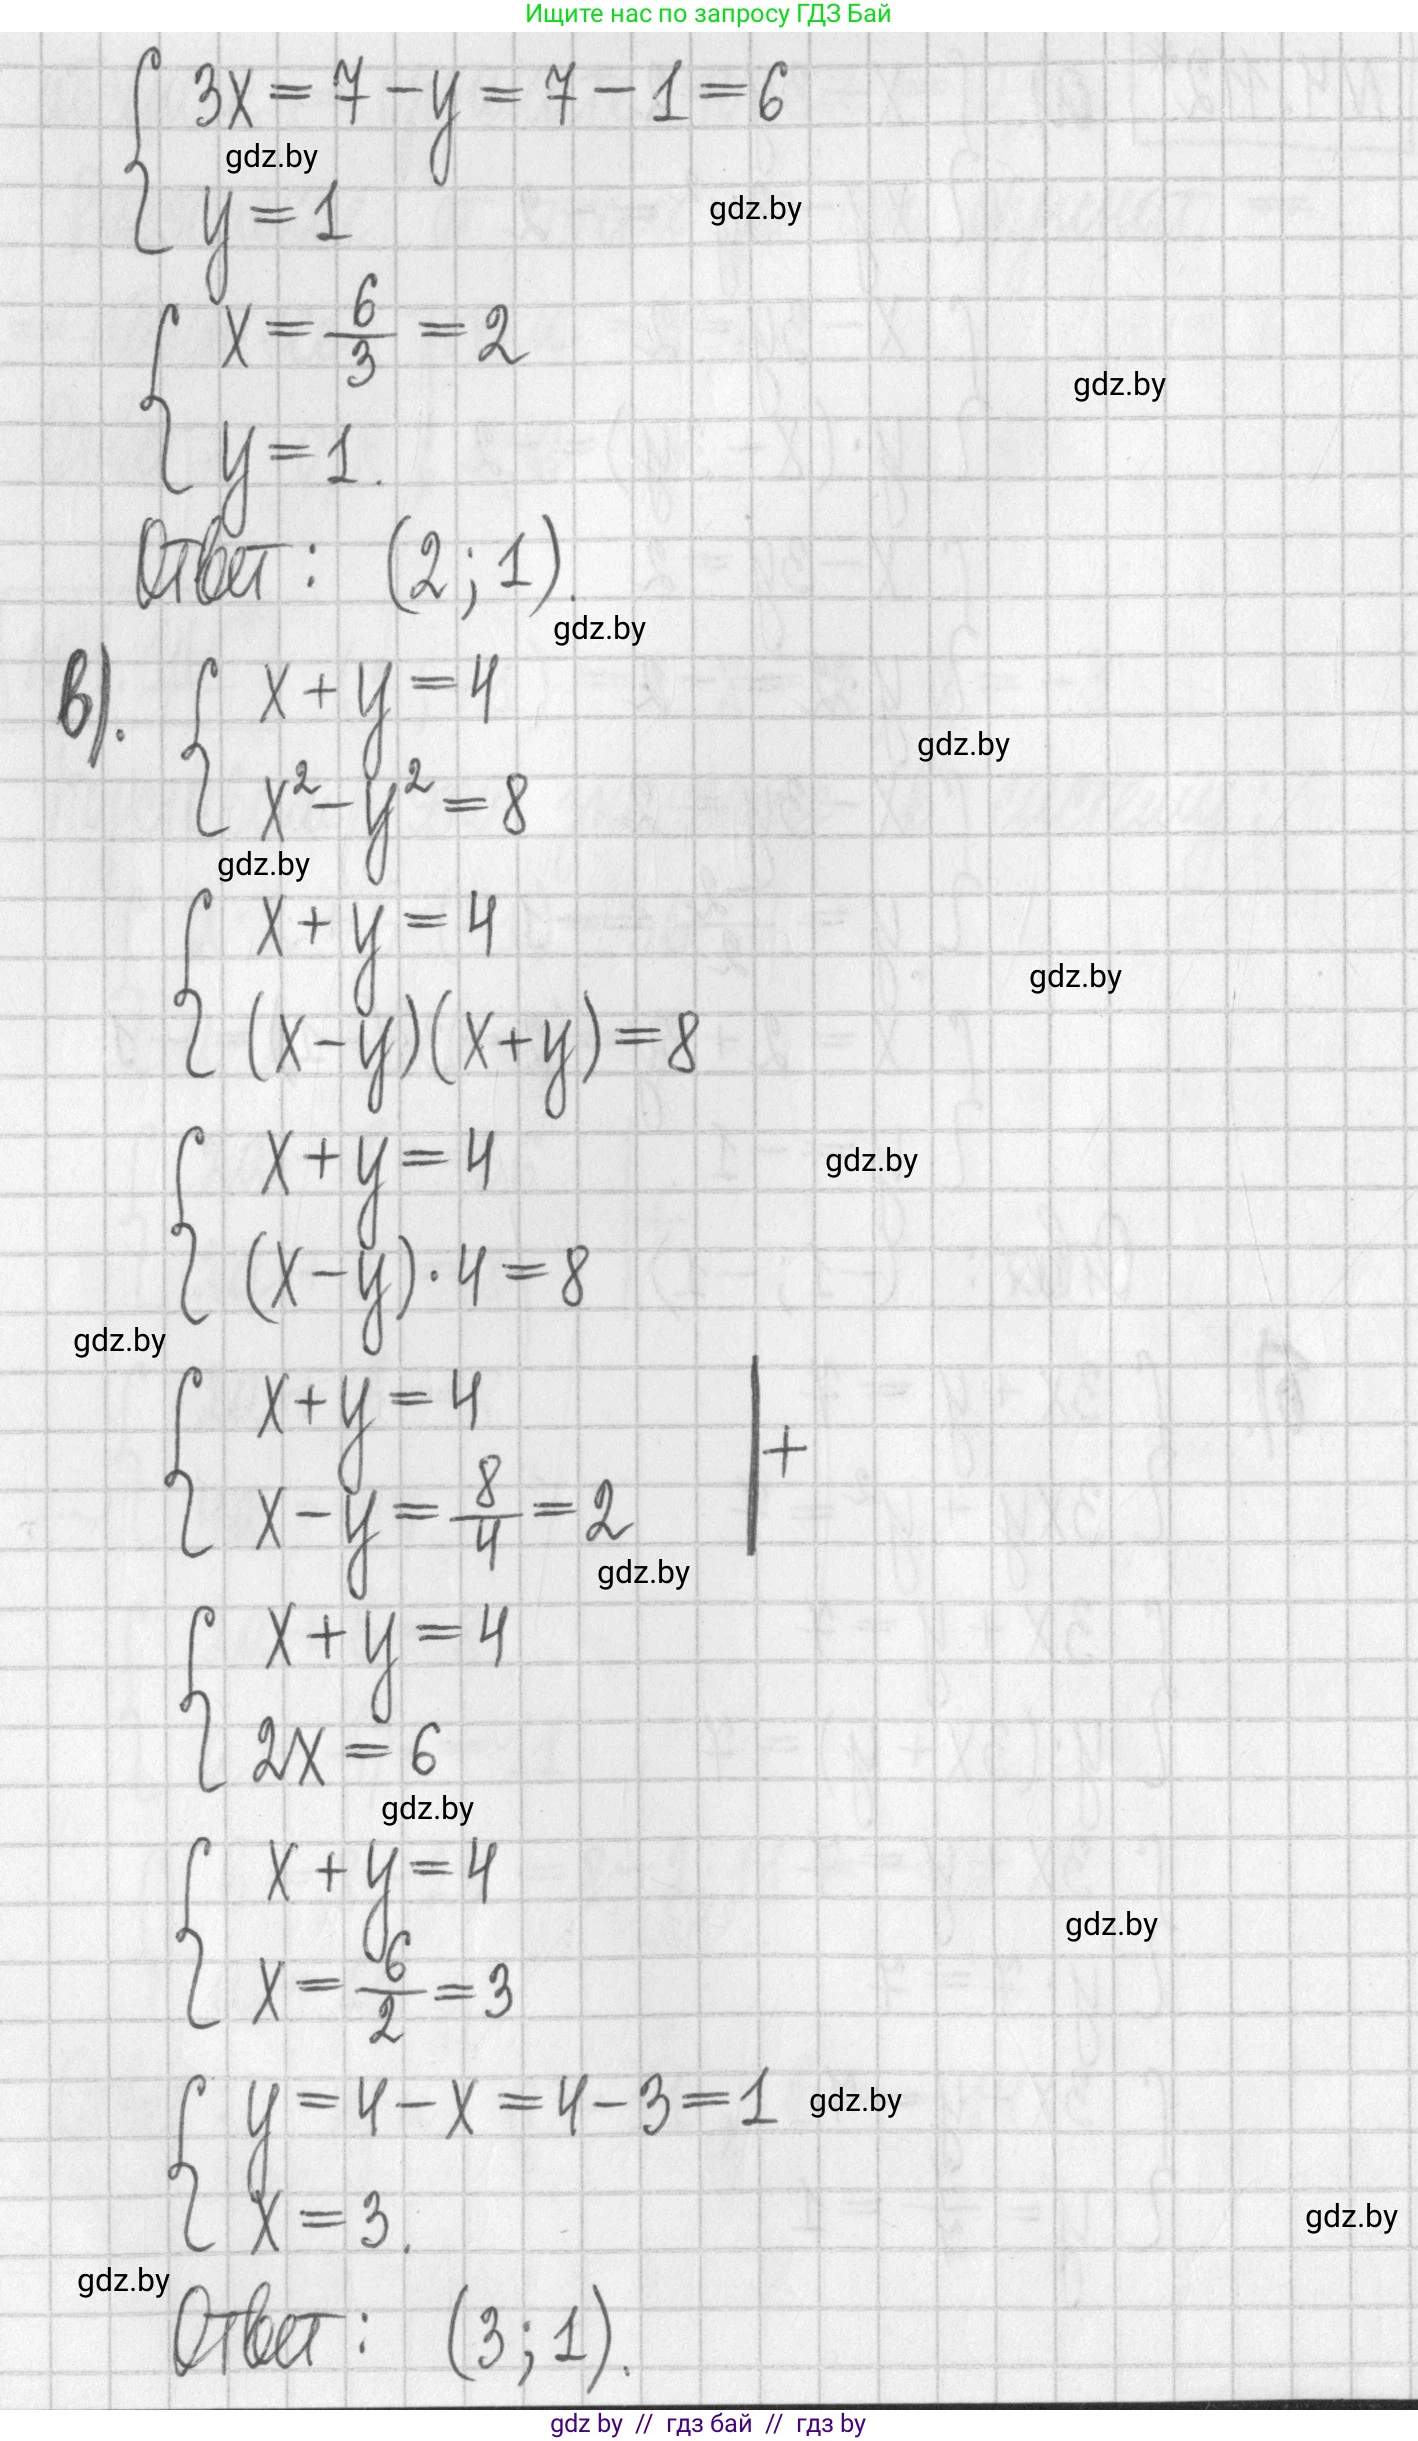 Ищите нас по запросу ГДЗ Бай
3x = 7 - y = 7 - 1 = 6
gdz.by
gdz.by
y = 1
x = 6/3 = 2
gdz.by
y = 1.
Ответ: (2; 1).
gdz.by
в). x + y = 4
gdz.by
x² - y² = 8
gdz.by
x + y = 4
gdz.by
(x - y)(x + y) = 8
x + y = 4
gdz.by
(x - y) · 4 = 8
gdz.by
x + y = 4
+
x - y = 8/4 = 2
gdz.by
x + y = 4
2x = 6
gdz.by
x + y = 4
gdz.by
x = 6/2 = 3
y = 4 - x = 4 - 3 = 1
gdz.by
x = 3.
gdz.by
gdz.by
Ответ: (3; 1).
gdz by // гдз бай // гдз by